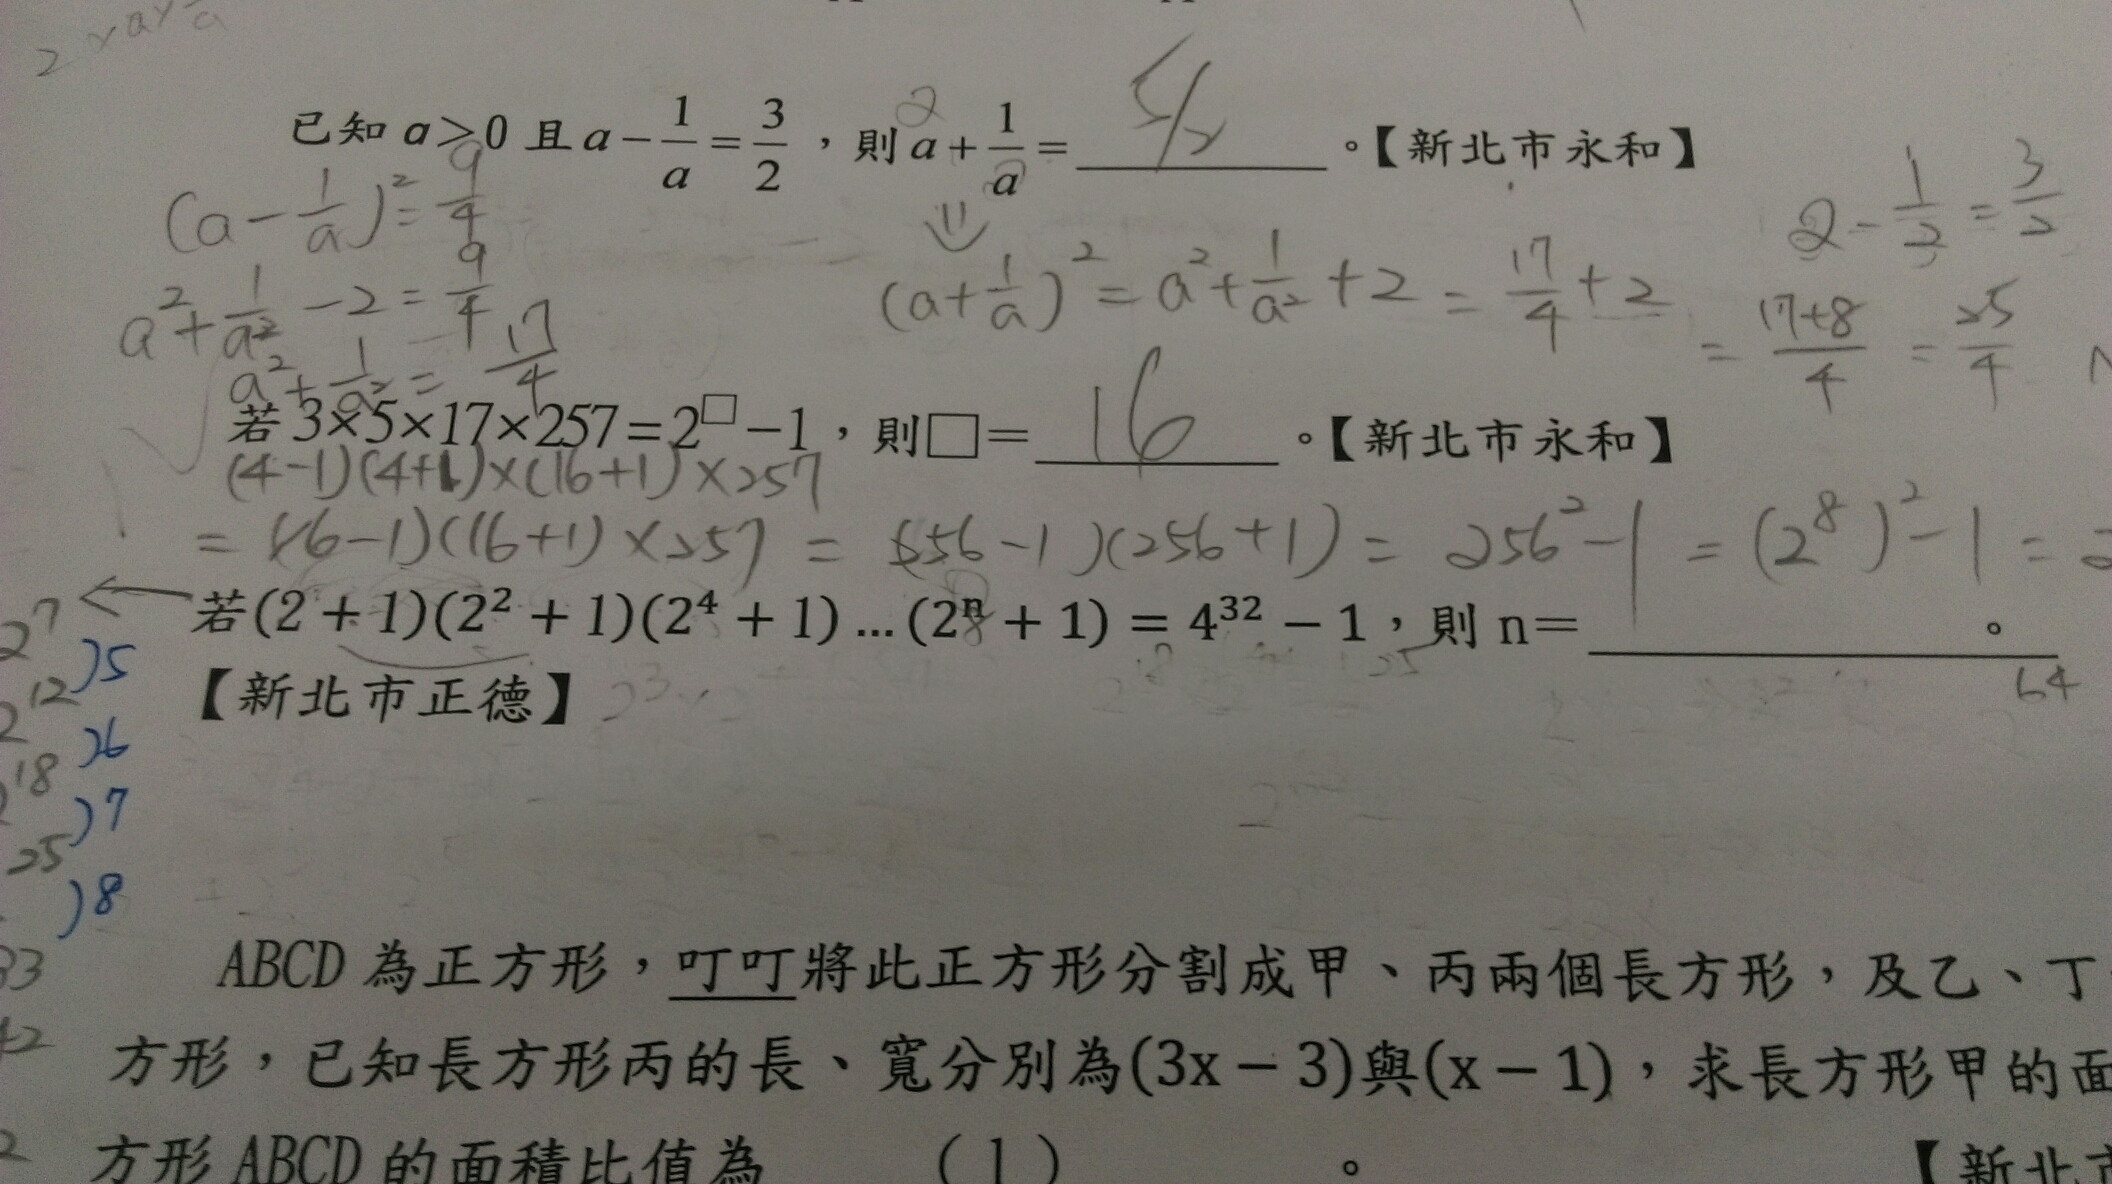 2×a×1/a
已知 a>0 且 a - 1/a = 3/2 ，則 a + 1/a = 5/2 。【新北市永和】
(a - 1/a)² = 9/4
2 - 1/2 = 3/2
a² + 1/a² - 2 = 9/4
(a + 1/a)² = a² + 1/a² + 2 = 17/4 + 2
= (17+8)/4 = 25/4
a² + 1/a² = 17/4
若 3×5×17×257＝2^□－1，則□＝ 16 。【新北市永和】
(4-1)(4+1)×(16+1)×257
= (16-1)(16+1)×257 = (256-1)(256+1) = 256²-1 = (2⁸)²-1 = 2
若(2 + 1)(2² + 1)(2⁴ + 1) … (2ⁿ + 1) = 4³² − 1，則 n＝ 。
64
【新北市正德】
2⁷
)5
2¹²
)6
18
)7
25
)8
33
42
2
ABCD 為正方形，叮叮將此正方形分割成甲、丙兩個長方形，及乙、丁
方形，已知長方形丙的長、寬分別為(3x − 3)與(x − 1)，求長方形甲的面
方形 ABCD 的面積比值為 （1） 。 【新北市